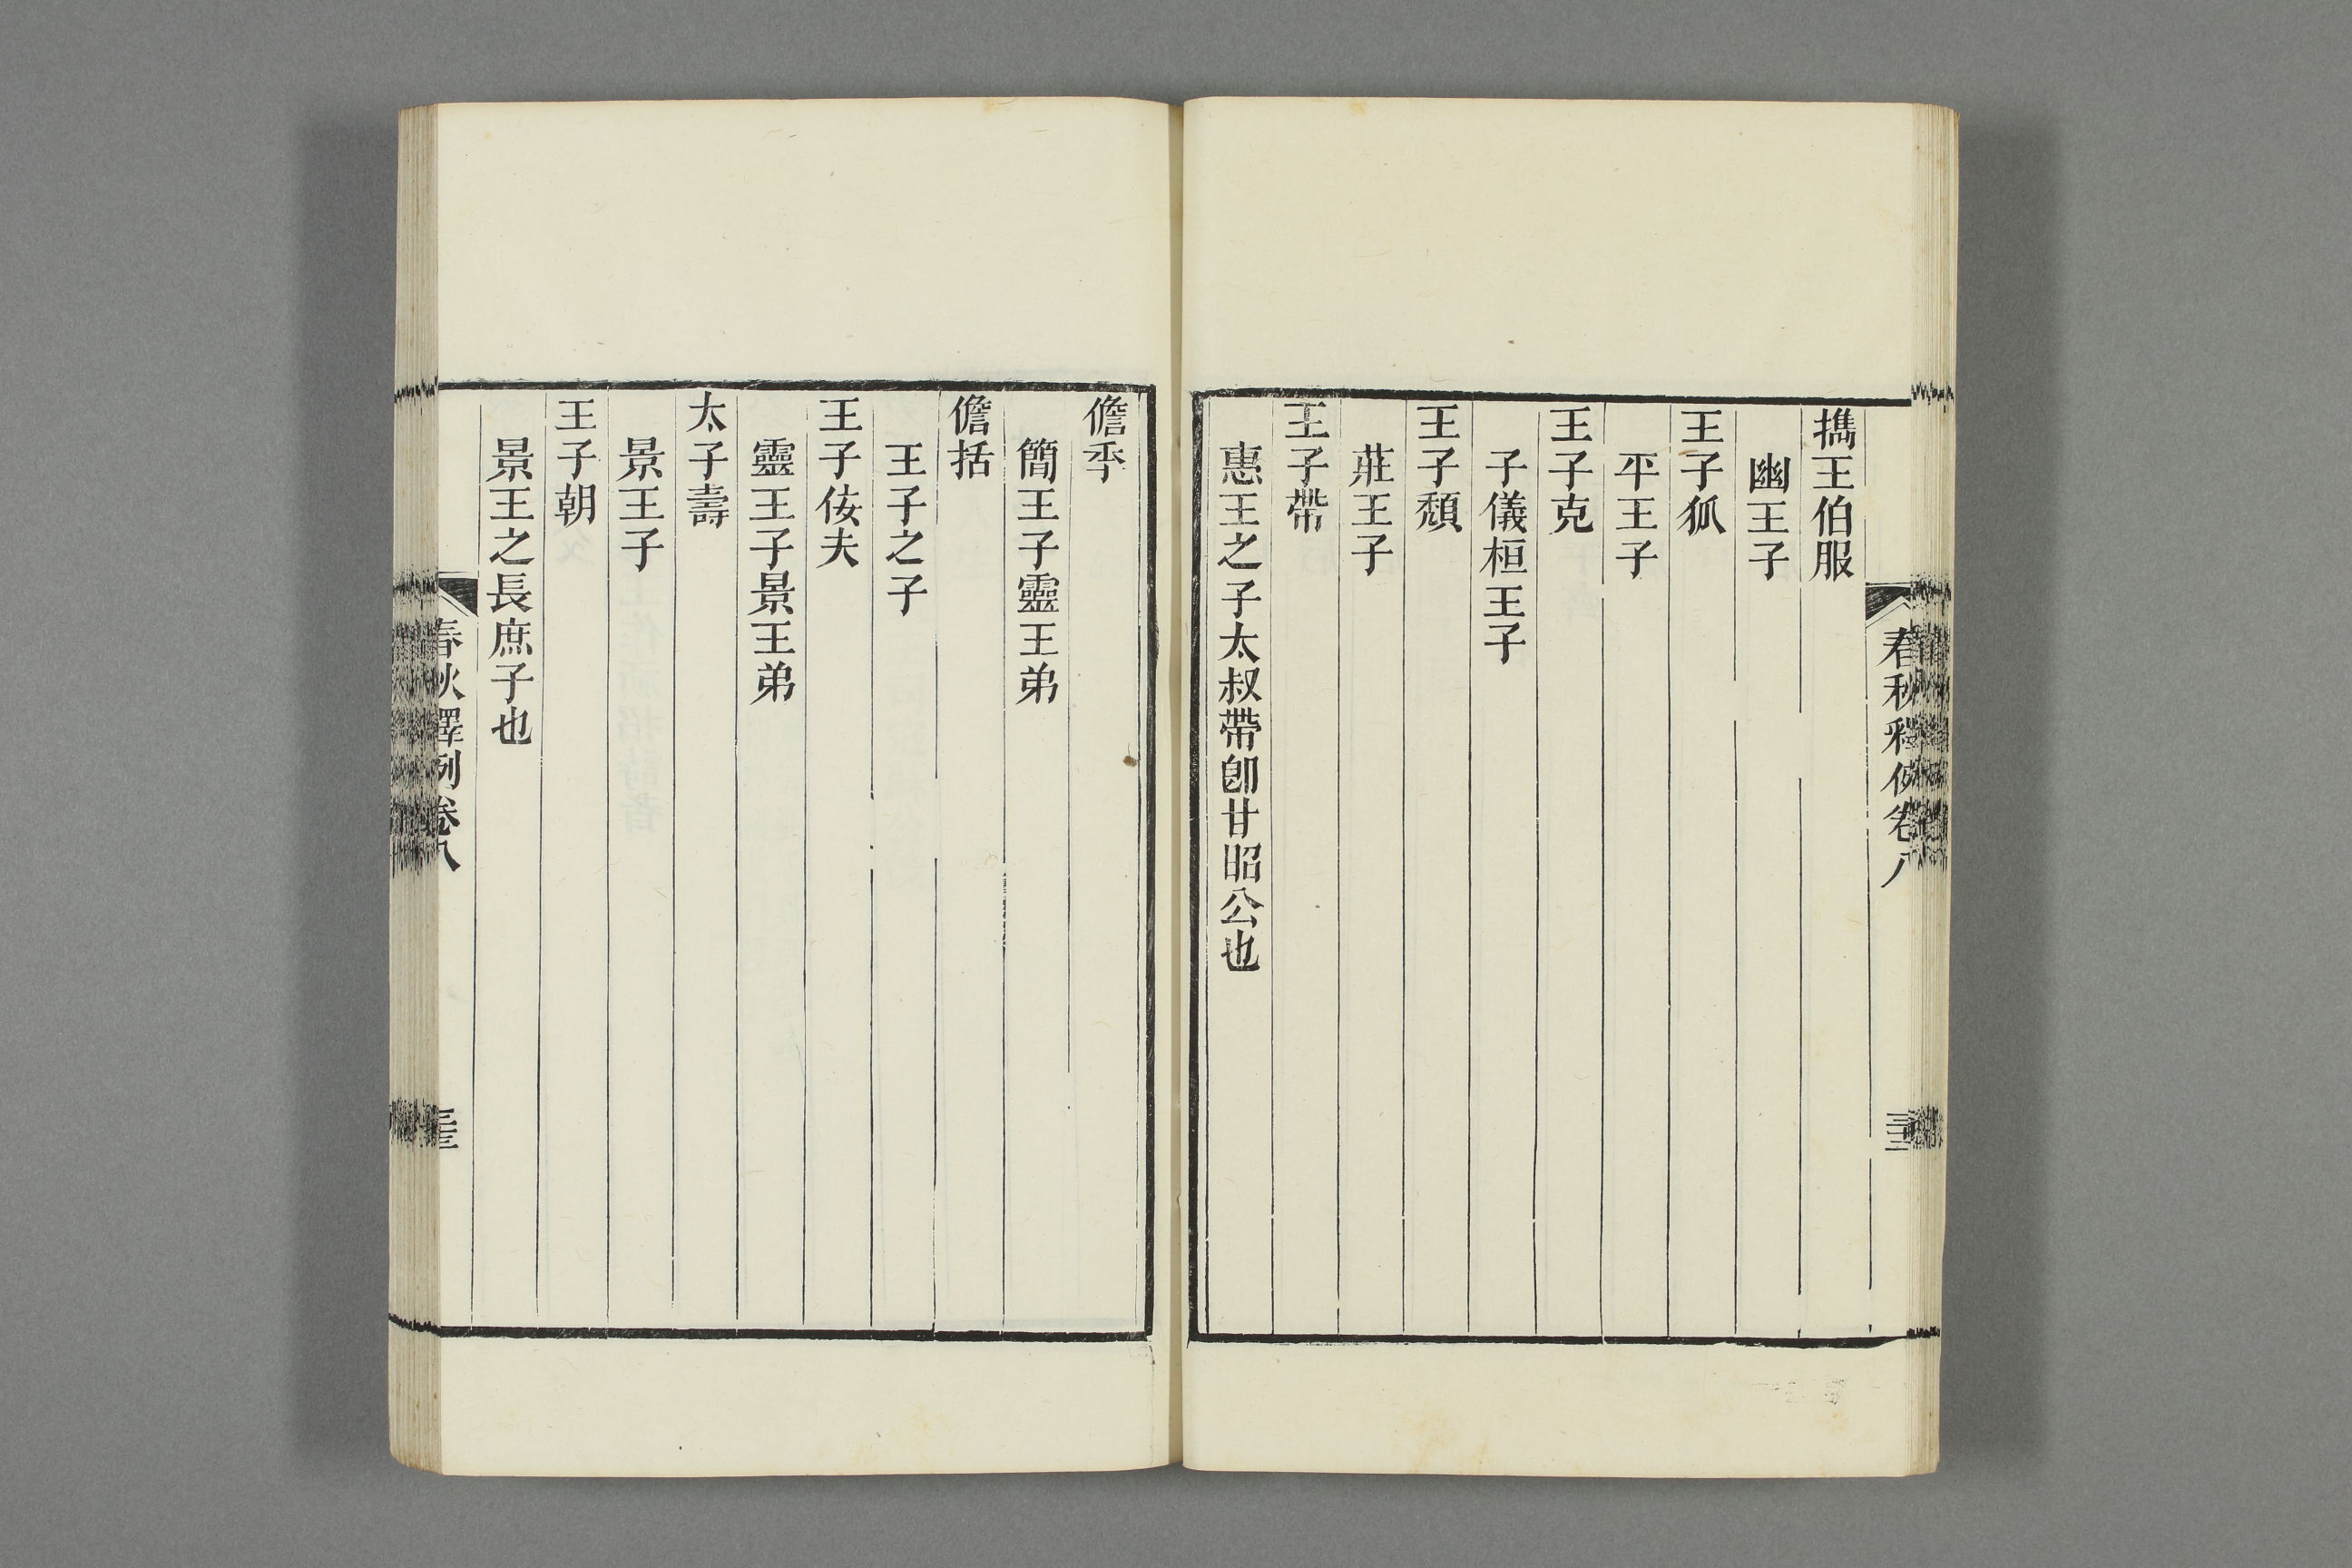 春秋釋例卷八
攜王伯服
幽王子
王子狐
平王子
王子克
子儀桓王子
王子頹
莊王子
王子帶
惠王之子太叔帶卽甘昭公也
儋季
簡王子靈王弟
儋括
王子之子
王子佞夫
靈王子景王弟
太子壽
景王子
王子朝
景王之長庶子也
春秋釋例卷八